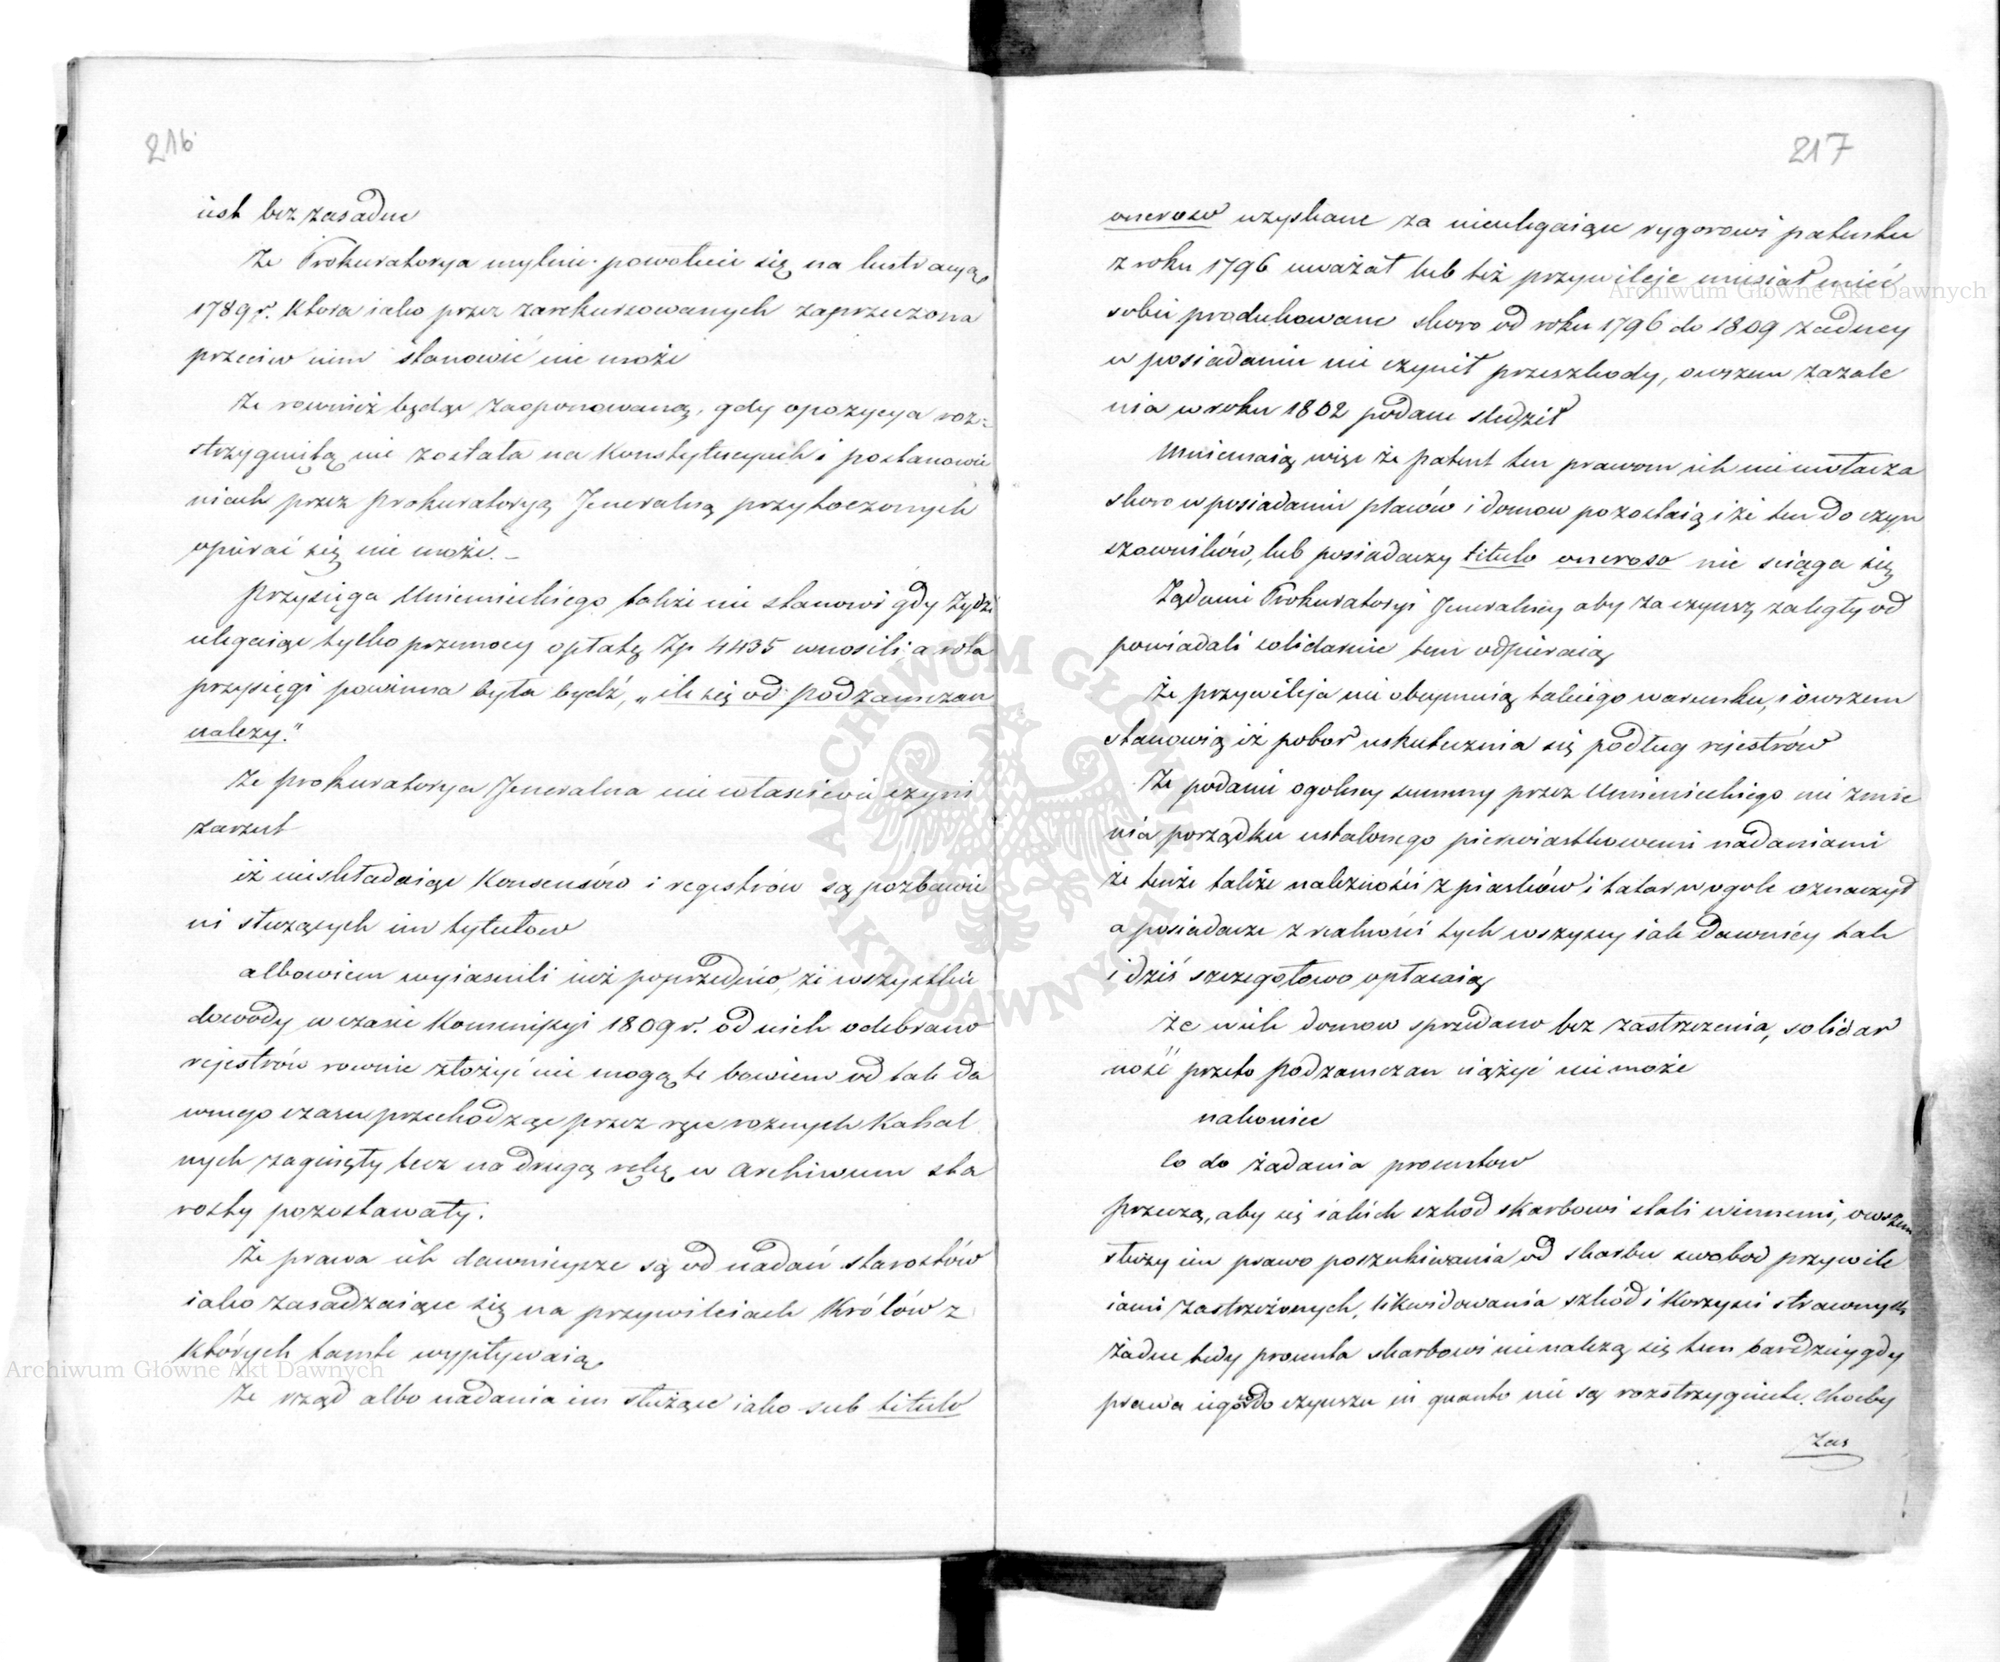 216
iest bezzasadne
Że Prokuratorya mylnie powołuie się na lustracyą
1789 r. która iako przez zarekurzowanych zaprzeczona
przeciw nim stanowić nie może
Że rownież będąc zaoponowaną, gdy opozycya roz=
strzygniętą nie została na Konstytucyach i postanowie
niach przez Prokuratoryą Jeneralną przytoczonych
opierać się nie może. –
Przysięga Umienieckiego także nie stanowi gdy Żydzi
ulegaiąc tylko przemocy opłatę Zp 4435 wnosili a rota
przysięgi powinna była bydź, „ile się od Podzamczan
należy."
Że Prokuratorya Jeneralna niewłaściwie czyni
zarzut
iż nieskładaiąc Konsensów i regestrów są pozbawie
ni służących im tytułow
albowiem wyiaśnili iuż poprzednio, że wszystkie
dowody w czasie Kommissyi 1809 r. od nich odebrano
rejestrów rownie złożyć nie mogą te bowiem od tak da
wnego czasu przechodząc przez ręce rożnych Kahal
nych zaginęły lecz na drugą rękę w Archiwum sta
rosty pozostawały.
Że prawa ich dawnieysze są od nadań starostów
iako zasadzaiące się na przywileiach Królów z
których tamte wypływaią.
Że rząd albo nadania im służące iako sub titulo
217
oneroso uzyskane za nieulegaiące rygorowi patentu
z roku 1796 uważał lub też przywileje musiał mieć
sobie produkowane skoro od roku 1796 do 1809 żadney
w posiadaniu nie czynił przeszkody, owszem zażale
nia w roku 1802 podane śledził
Umiemaią więc że patent ten prawom ich nie uwłacza
skoro w posiadaniu placów i domow pozostaią i że ten do czyn
szowników, lub posiadaczy titulo oneroso nie ściąga się
Żądanie Prokuratoryi Jeneralney aby za czynsz zaległy od
powiadali solidarnie tem odpieraią
Że przywileja nie obeymuią takiego warunku, i owszem
stanowią iż pobor uskutecznia się podług rejestrów
Że podanie ogolney summy przez Umienieckiego nie zmie
nia porządku ustalonego pierwiastkowemi nadaniami
że tenże także należności z piasków i tatar w ogole oznaczył
a posiadacze z realności tych wszyscy iak dawniey tak
i dziś szczegołowo opłacaią
Że wiele domow sprzedano bez zastrzeżenia, solidar
ność przeto Podzamczan ciążyć nie może
nakoniec
Co do żądania procentow
przeczą, aby się iakich szkod skarbowi stali winnemi, owszem
służy im prawo poszukiwania od skarbu swobod przywile
iami zastrzeżonych, likwidowania szkod i korzyści straconych
żadne tedy procenta skarbowi nie należą się tem bardziey gdy
prawa iego do czynszu in quanto nie są rozstrzygnięte. Choćby
Zas